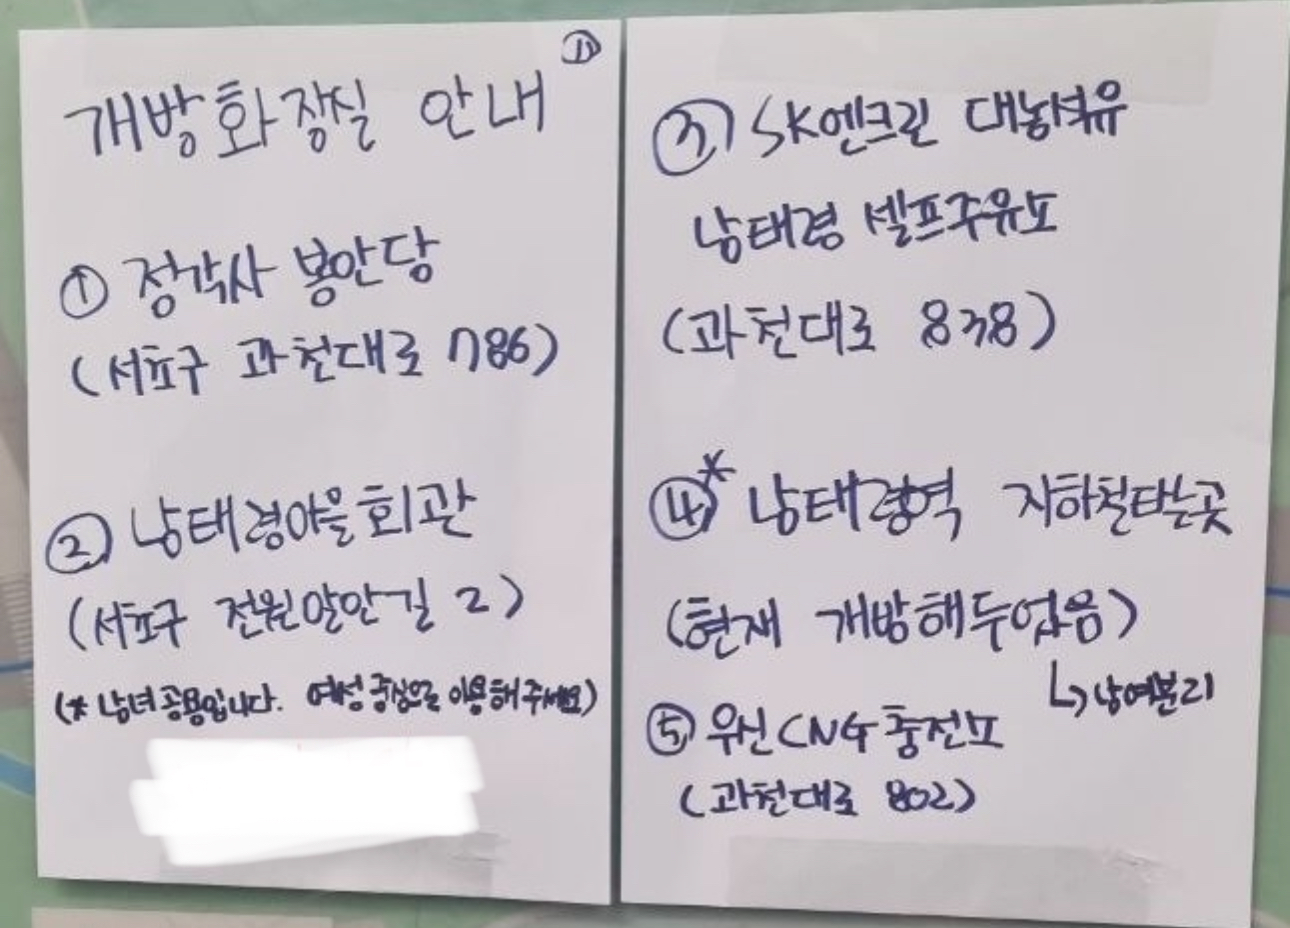 ①
개방화장실 안내
① 정각사 봉안당
(서초구 과천대로 786)
② 남태령마을회관
(서초구 전원말안길 2)
(* 남녀공용입니다. 여성 중심으로 이용해주세요)
③ SK엔크린 대농석유
남태령 셀프주유소
(과천대로 838)
④* 남태령역 지하철타는곳
(현재 개방해두었음)
↳남여분리
⑤ 우신CNG충전소
(과천대로 802)